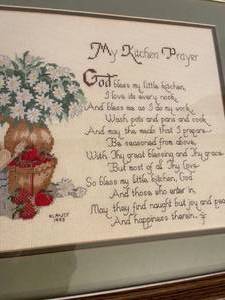 My Kitchen Prayer
God bless my little kitchen,
I love its every nook,
And bless me as I do my work,
Wash pots and pans and cook.
And may the meals that I prepare
Be seasoned from above,
With Thy great blessing and Thy grace
But most of all Thy Love.
So bless my little kitchen, God
And those who enter in,
May they find naught but joy and peace
And happiness therein.